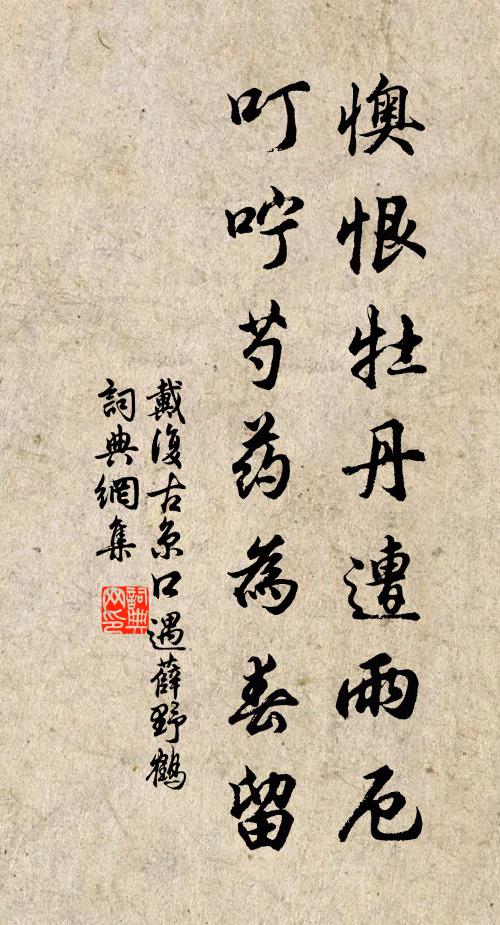 懊恨牡丹遭雨厄
叮咛芍药為春留
戴復古京口遇薛野鶴
詞典網集
詞典網印